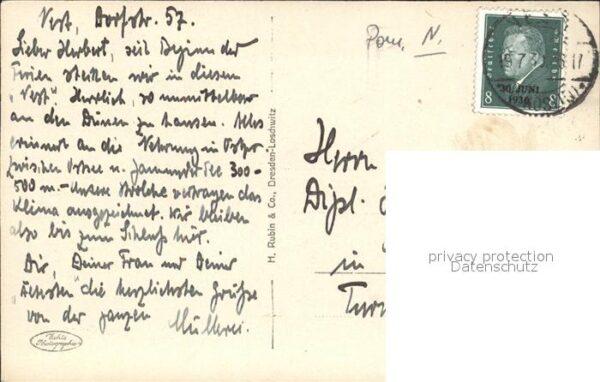 Nest, Dorfstr. 57.
Lieber Herbert, seit Beginn der
Ferien stecken wir in diesem
„Nest“. Herrlich, so unmittelbar
an den Dünen zu hausen. Alles
erinnert an die Nehrung in Ostpr.
zwischen Ostsee u. Jamunder See 300-
500 m. - Unsere Strolche vertragen das
Klima ausgezeichnet. Wir bleiben
also bis zum Schluss hier.
Dir, Deiner Frau und Deiner
"Ältesten" die herzlichsten Grüße
von der ganzen
Müllerei.
Echte
Photographie
M. Rubin & Co., Dresden-Loschwitz
Pom. N.
30. JUNI
1930
8 8
17
Herrn
Dipl.
in
privacy protection
Datenschutz